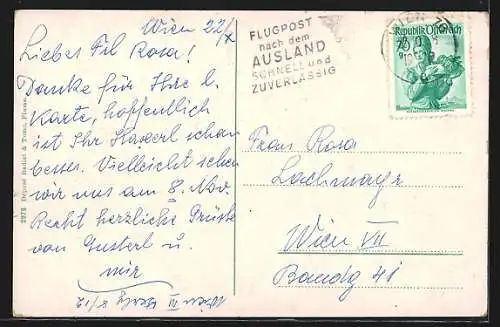 Wien 22/X
Liebes Frl Rosa!
Danke für Ihre l.
Karte, hoffentlich
ist Ihr Haxerl schon
besser. Vielleicht sehen
wir uns am 8. Nov.
Recht herzliche Grüsse
von Gusterl u.
mir
Wien IV 8/12
2972 Dépose Radisl & Tomo, Fiume.
FLUGPOST
nach dem
AUSLAND
SCHNELL und
ZUVERLÄSSIG
WIEN
Republik Österreich
Frau Rosa
Lachmayr
Wien VII
Bandg 41